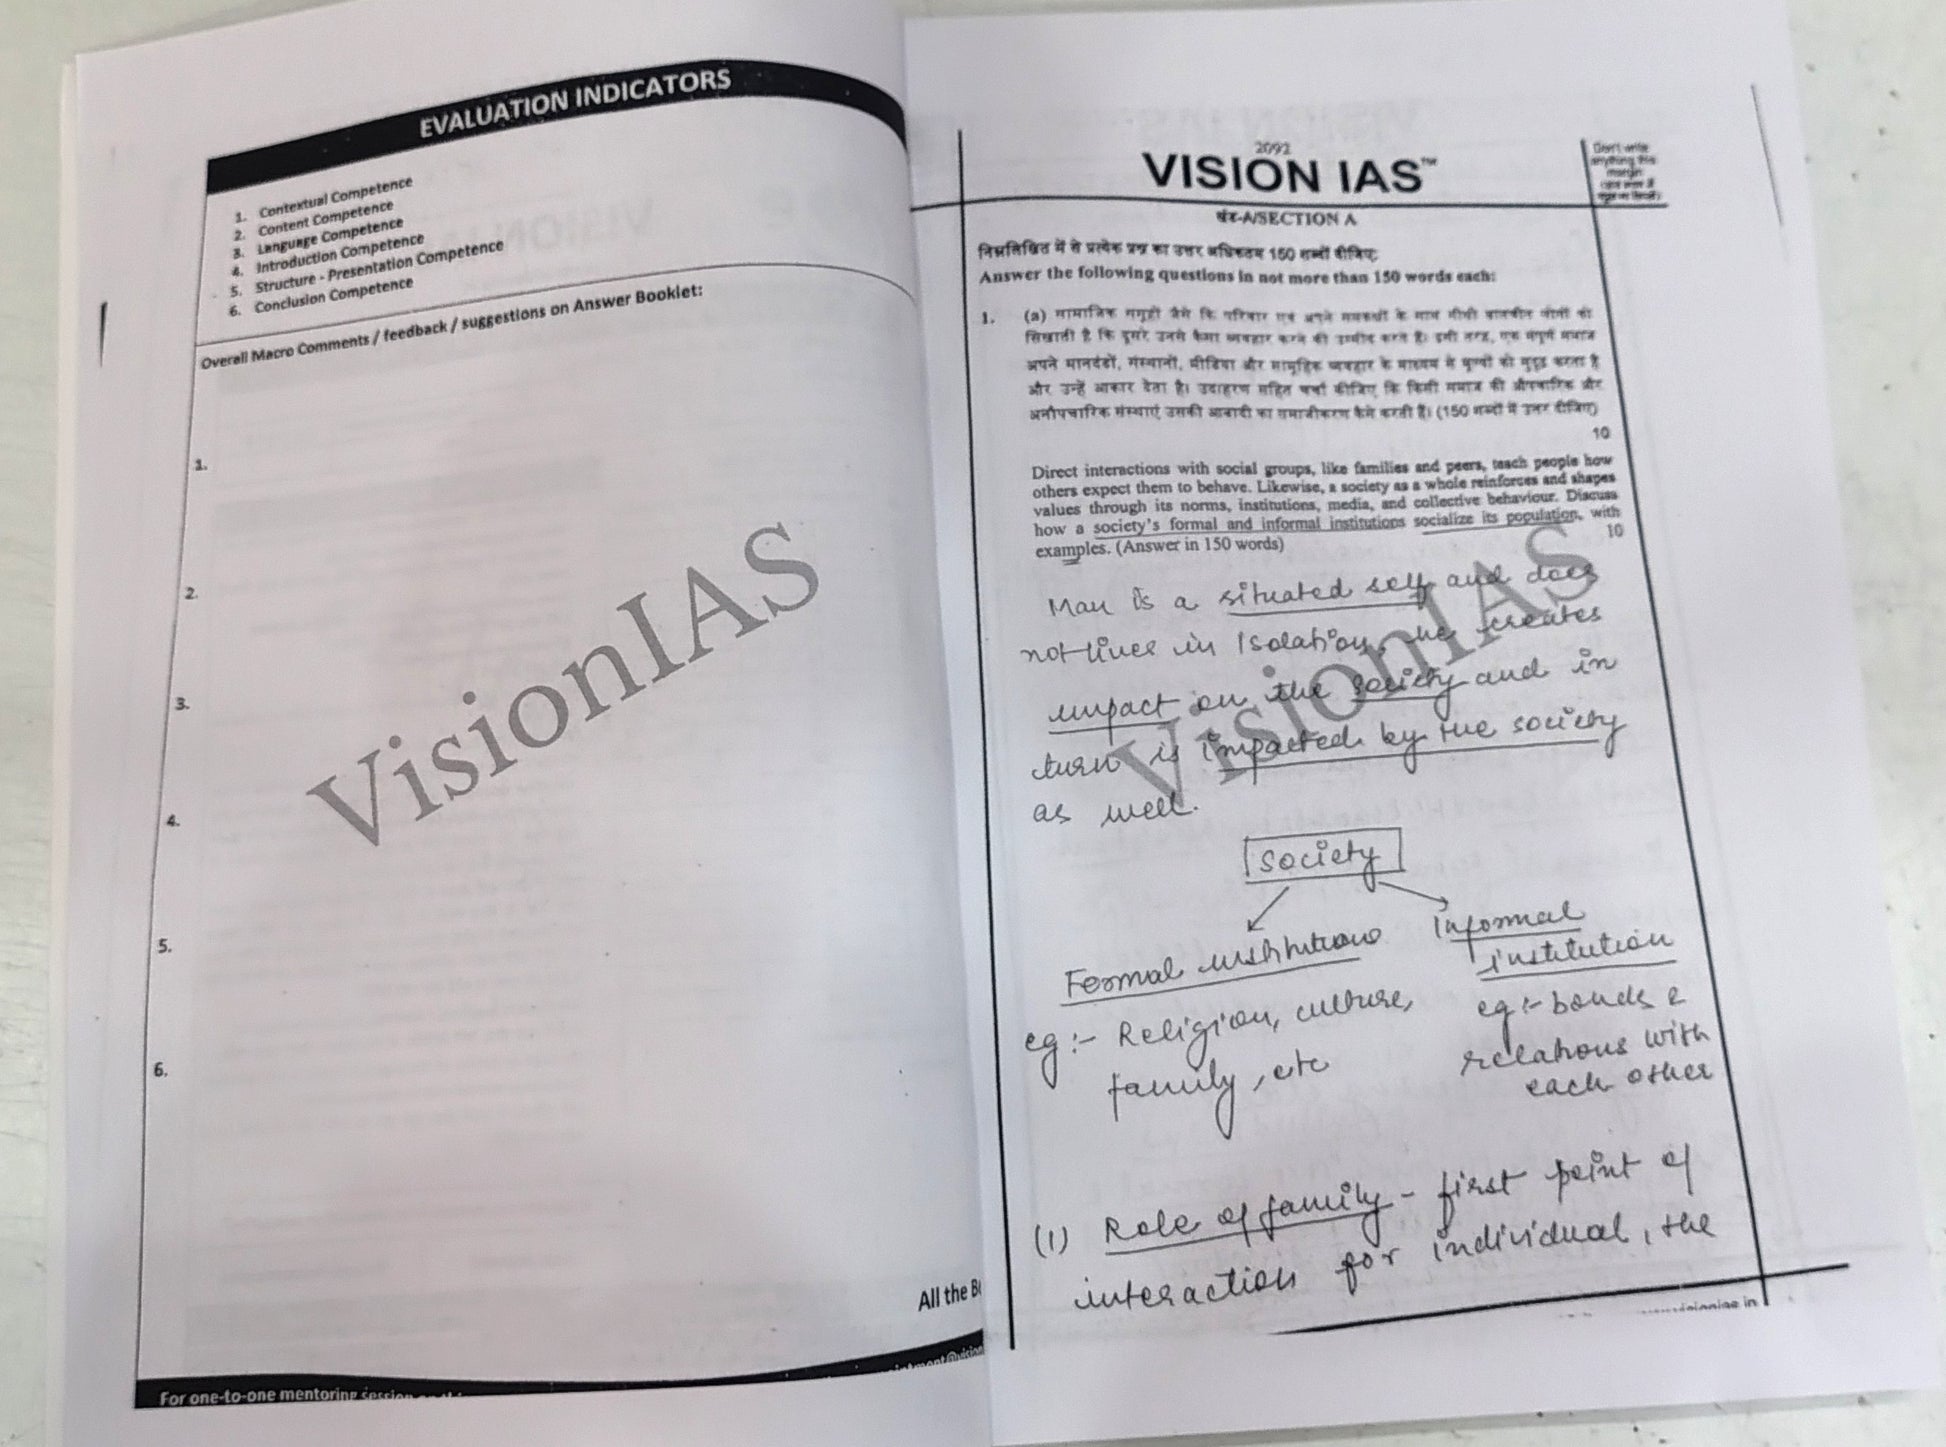 EVALUATION INDICATORS
1. Contextual Competence
2. Content Competence
3. Language Competence
4. Introduction Competence
5. Structure - Presentation Competence
6. Conclusion Competence
Overall Macro Comments / feedback / suggestions on Answer Booklet:
1.
2.
3.
4.
5.
6.
VisionIAS
All the B
For one-to-one mentoring session
2092
VISION IAS™
Don't write
anything this
margin
खंड-A/SECTION A
निम्नलिखित में से प्रत्येक प्रश्न का उत्तर अधिकतम 150 शब्दों दीजिए:
Answer the following questions in not more than 150 words each:
1. (a) सामाजिक समूहों जैसे कि परिवार एवं अपने समकक्षों के साथ सीधी बातचीत लोगों को
सिखाती है कि दूसरे उनसे कैसा व्यवहार करने की उम्मीद करते हैं। इसी तरह, एक संपूर्ण समाज
अपने मानदंडों, संस्थानों, मीडिया और सामूहिक व्यवहार के माध्यम से मूल्यों को सुदृढ़ करता है
और उन्हें आकार देता है। उदाहरण सहित चर्चा कीजिए कि किसी समाज की औपचारिक और
अनौपचारिक संस्थाएं उसकी आबादी का समाजीकरण कैसे करती हैं। (150 शब्दों में उत्तर दीजिए)
10
Direct interactions with social groups, like families and peers, teach people how
others expect them to behave. Likewise, a society as a whole reinforces and shapes
values through its norms, institutions, media, and collective behaviour. Discuss
how a society's formal and informal institutions socialize its population, with
examples. (Answer in 150 words)
10
Man is a situated self and does
not lives in isolation, he creates
impact on the society and in
turn is impacted by the society
as well.
VisionIAS
Society
Formal institutions
Informal
institution
eg:- Religion, culture,
family, etc
eg:- bonds &
relations with
each other
(1) Role of family - first point of
interaction for individual, the